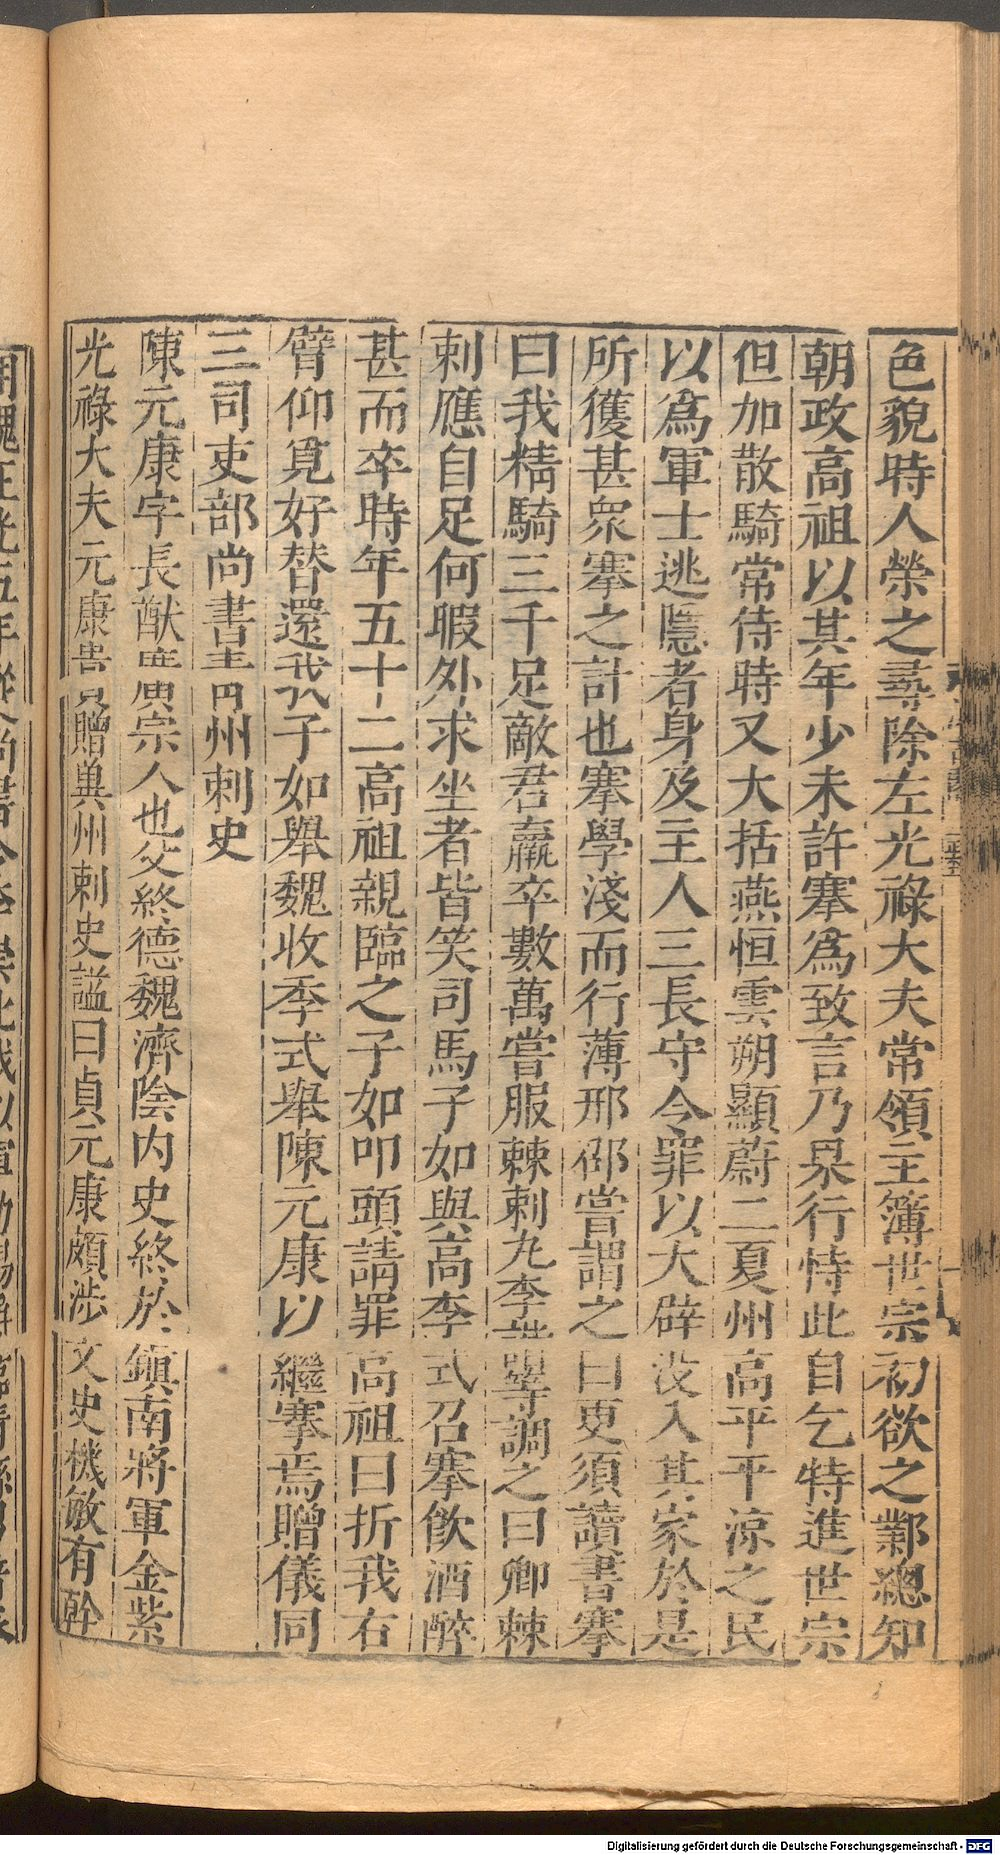 色貌時人榮之尋除左光祿大夫常領主簿世宗初欲之鄴總知
朝政高祖以其年少未許搴爲致言乃果行恃此自乞特進世宗
但加散騎常侍時又大括燕恒雲朔顯蔚二夏州高平平涼之民
以爲軍士逃隱者身及主人三長守令罪以大辟没入其家於是
所獲甚衆搴之計也搴學淺而行薄邢邵嘗謂之曰更須讀書搴
曰我精騎三千足敵君羸卒數萬嘗服棘刺丸李諧等調之曰卿棘
刺應自足何暇外求坐者皆笑司馬子如與高季式召搴飲酒醉
甚而卒時年五十二高祖親臨之子如叩頭請罪高祖曰折我右
臂仰覓好替還我子如舉魏收季式舉陳元康以繼搴焉贈儀同
三司吏部尚書青州刺史
陳元康字長猷廣宗人也父終德魏濟陰内史終於鎮南將軍金紫
光祿大夫元康貴贈兾州刺史謚曰貞元康頗涉文史機敏有幹
Digitalisierung gefördert durch die Deutsche Forschungsgemeinschaft - DFG